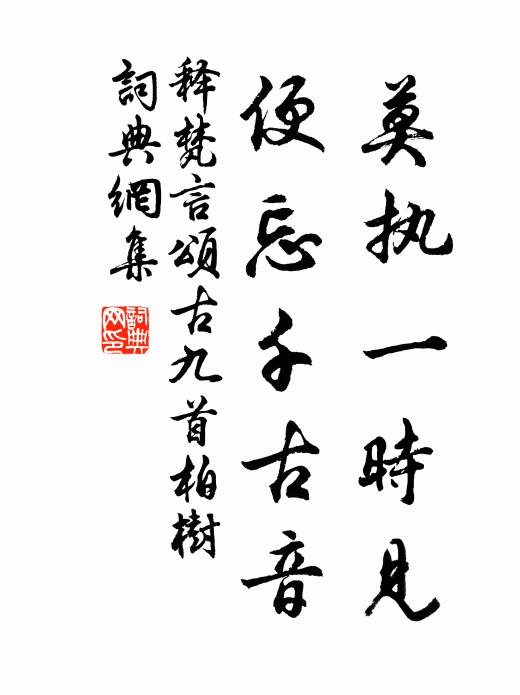 莫执一時見
便忘千古音
释梵言頌古九首柏樹
詞典網集
詞典
网印